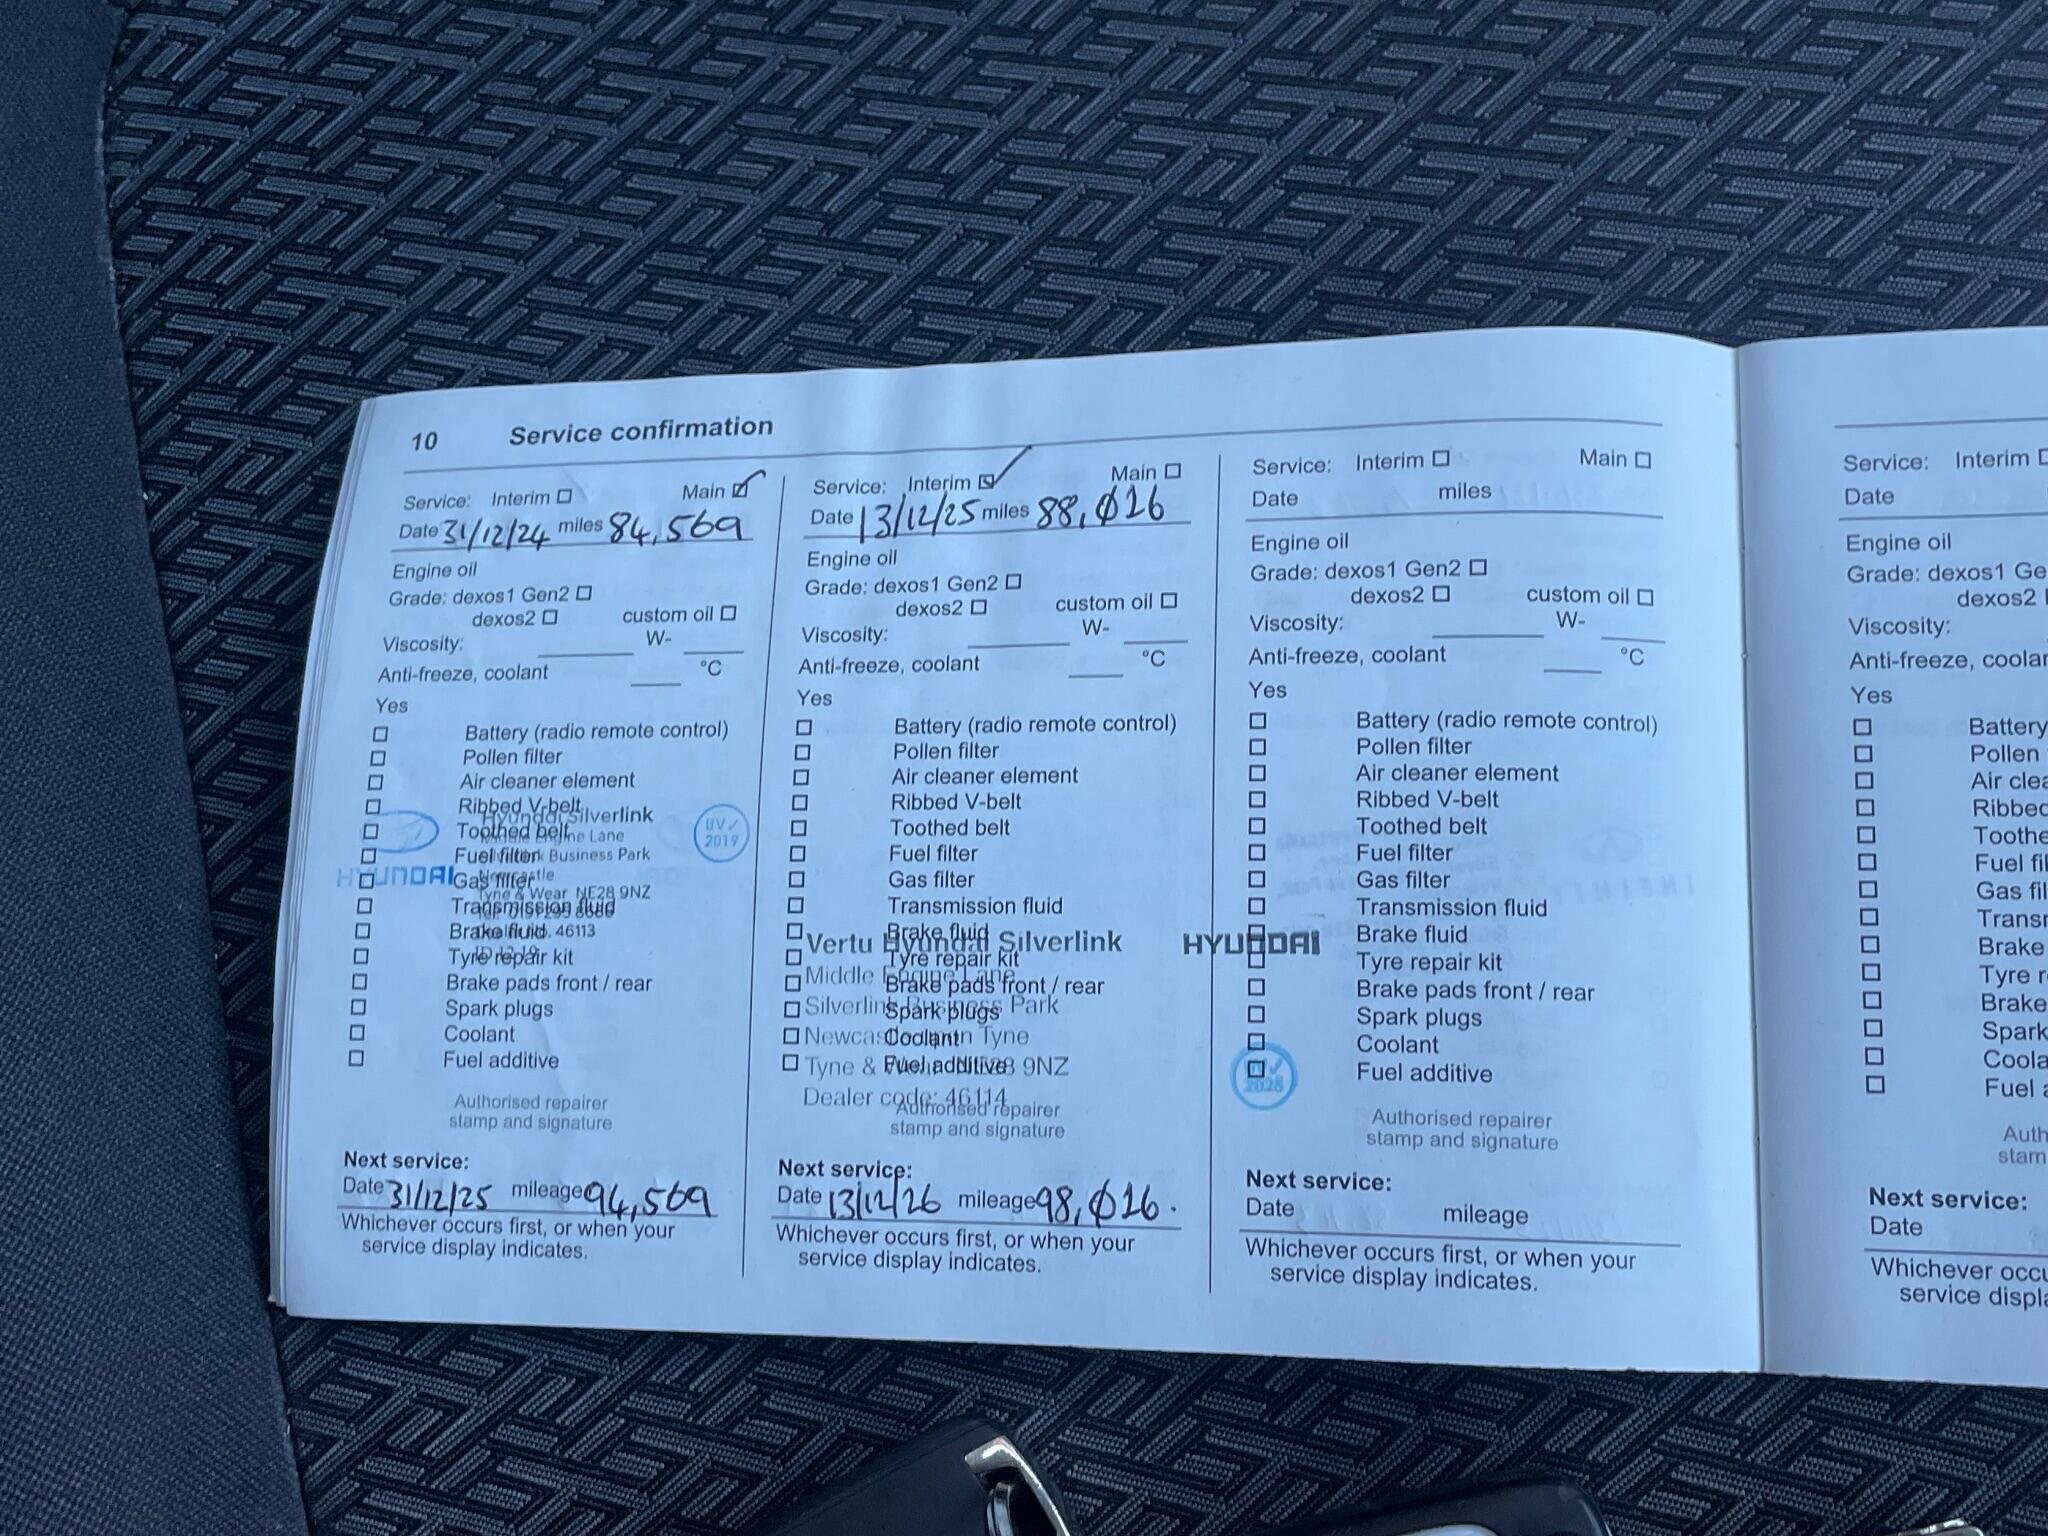 10 Service confirmation
Service: Interim Main
Date 31/12/24 miles 84,569
Engine oil
Grade: dexos1 Gen2
dexos2 custom oil
Viscosity: W-
Anti-freeze, coolant °C
Yes
Battery (radio remote control)
Pollen filter
Air cleaner element
Ribbed V-belt
Hyundai Silverlink
Toothed belt
Middle Engine Lane
UV✓
2019
Fuel filter
Business Park
HYUNDAI
Gas filter
Newcastle
Tyne & Wear NE28 9NZ
Transmission fluid
Brake fluid
46113
Tyre repair kit
Brake pads front / rear
Spark plugs
Coolant
Fuel additive
Authorised repairer
stamp and signature
Next service:
Date 31/12/25 mileage 94,569
Whichever occurs first, or when your
service display indicates.
Service: Interim Main
Date 13/12/25 miles 88,016
Engine oil
Grade: dexos1 Gen2
dexos2 custom oil
Viscosity: W-
Anti-freeze, coolant °C
Yes
Battery (radio remote control)
Pollen filter
Air cleaner element
Ribbed V-belt
Toothed belt
Fuel filter
Gas filter
Transmission fluid
Brake fluid
Vertu Hyundai Silverlink HYUNDAI
Tyre repair kit
Middle Engine Lane
Brake pads front / rear
Silverlink Business Park
Spark plugs
Newcastle upon Tyne
Coolant
Tyne & Wear NE28 9NZ
Fuel additive
Dealer code: 46114
Authorised repairer
stamp and signature
Next service:
Date 13/12/26 mileage 98,016.
Whichever occurs first, or when your
service display indicates.
Service: Interim Main
Date miles
Engine oil
Grade: dexos1 Gen2
dexos2 custom oil
Viscosity: W-
Anti-freeze, coolant °C
Yes
Battery (radio remote control)
Pollen filter
Air cleaner element
Ribbed V-belt
Toothed belt
Fuel filter
Gas filter
Transmission fluid
Brake fluid
Tyre repair kit
Brake pads front / rear
Spark plugs
Coolant
Fuel additive
Authorised repairer
stamp and signature
Next service:
Date mileage
Whichever occurs first, or when your
service display indicates.
Service: Interim
Date
Engine oil
Grade: dexos1 Ge
dexos2
Viscosity:
Anti-freeze, coolan
Yes
Battery
Pollen
Air clea
Ribbed
Toothe
Fuel fil
Gas fil
Trans
Brake
Tyre r
Brake
Spark
Coola
Fuel a
Auth
stam
Next service:
Date
Whichever occu
service displa